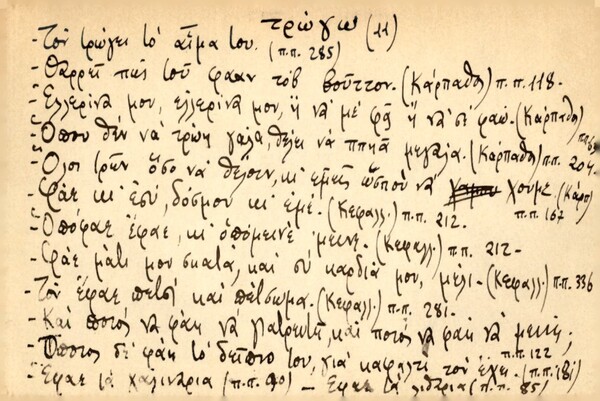 τρώγω (11)
- Τὸν τρώγει τὸ αἷμα του. (π.π. 285)
- Θαρρεῖ πὼς τοῦ φάαν τὸβ βοῦττον. (Κάρπαθο) π.π. 118.
- Ἐλλερίνα μου, ἐλλερίνα μου, ἢ νὰ μὲ φᾷς ἢ νὰ σὲ φάω. (Κάρπαθο)
- Ὅπου θὲν νὰ τρώῃ γάλα, θέλει νὰ μεγάλα. (Κάρπαθο) π.π. 204.
- Ὅλοι τρῶν ὅσο νὰ θέλουν, κι' ἐμεῖς ὥσπου νὰ χουμε (Κάρπ) π.π. 167
- Φάε κι' ἐσύ, δόσμου κι' ἐμέ. (Κεφαλλ.) π.π. 212.
- Ὁπόφαε ἔφαε, κι' ὁπόμεινε ἔμεινε. (Κεφαλλ.) π.π. 212.
- Φάε μάτι μου σκατά, καὶ σὺ καρδιά μου, μέλι. (Κεφαλλ.) π.π. 336
- Τὸν ἔφαε πετσὶ καὶ πέτσωμα. (Κεφαλλ.) π.π. 281.
- Καὶ ποιὸς νὰ φάῃ νὰ γιατρευτῇ, καὶ ποιὸς νὰ φάῃ νὰ μείνῃ; π.π. 122
- Ὅποιος δὲ φάῃ τὸ δεῖπνο του, γιὰ τὸν ἔχει. (π.π. 181)
- Ἔφαε τὰ χαλινάρια (π.π. 90) – Ἔφαε τὰ λιθάρια (π.π. 85)